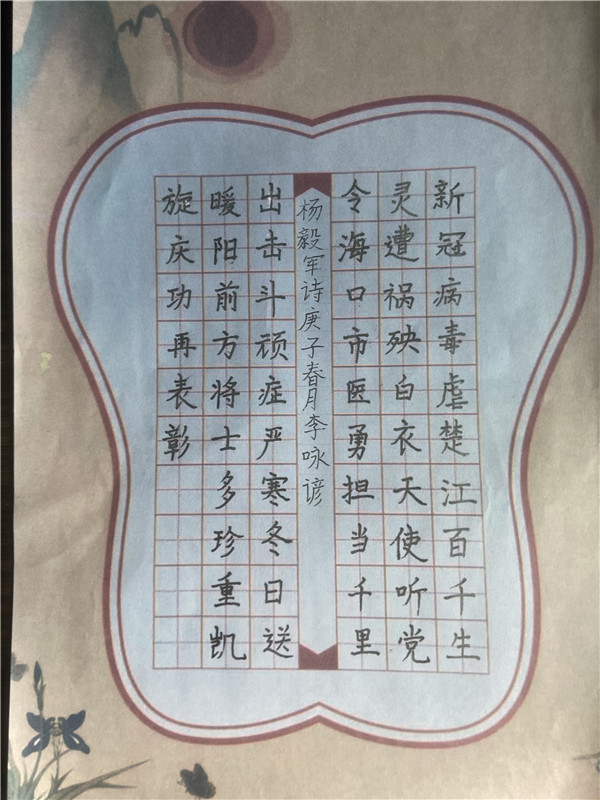 新冠病毒虐楚江百千生
灵遭祸殃白衣天使听党
令海口市医勇担当千里
杨毅军诗庚子春月李咏谚
出击斗顽症严寒冬日送
暖阳前方将士多珍重凯
旋庆功再表彰